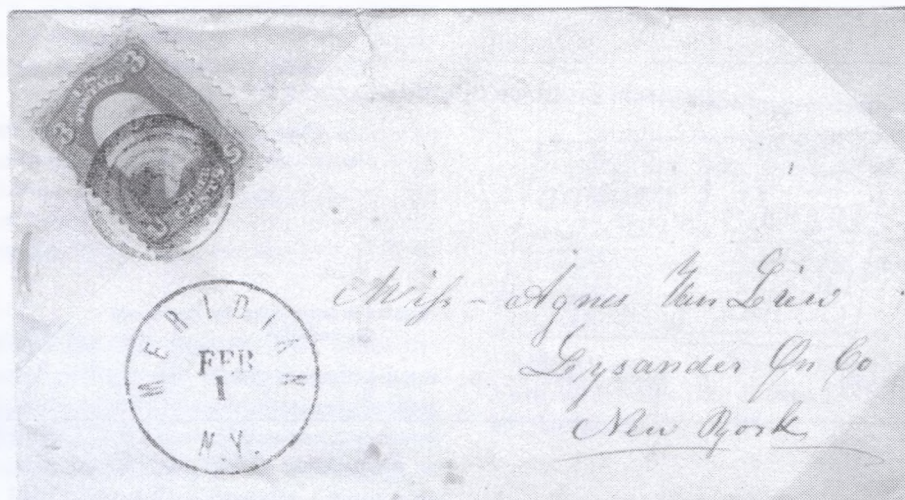 3 U.S. POSTAGE 3
MERIDIAN
FEB
1
N.Y.
Miss - Agnes Van Liew
Lysander On Co
New York